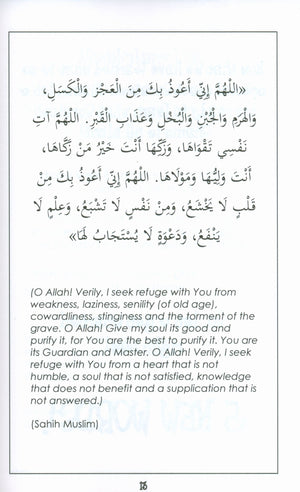 «اللَّهُمَّ إِنِّي أَعُوذُ بِكَ مِنَ الْعَجْزِ وَالْكَسَلِ،
وَالْهَرَمِ وَالْجُبْنِ وَالْبُخْلِ وَعَذَابِ الْقَبْرِ. اللَّهُمَّ آتِ
نَفْسِي تَقْوَاهَا، وَزَكِّهَا أَنْتَ خَيْرُ مَنْ زَكَّاهَا،
أَنْتَ وَلِيُّهَا وَمَوْلَاهَا. اللَّهُمَّ إِنِّي أَعُوذُ بِكَ مِنْ
قَلْبٍ لَا يَخْشَعُ، وَمِنْ نَفْسٍ لَا تَشْبَعُ، وَعِلْمٍ لَا
يَنْفَعُ، وَدَعْوَةٍ لَا يُسْتَجَابُ لَهَا»
(O Allah! Verily, I seek refuge with You from
weakness, laziness, senility (of old age),
cowardliness, stinginess and the torment of the
grave. O Allah! Give my soul its good and
purify it, for You are the best to purify it. You
are its Guardian and Master. O Allah! Verily, I seek
refuge with You from a heart that is not
humble, a soul that is not satisfied, knowledge
that does not benefit and a supplication that is
not answered.)
(Sahih Muslim)